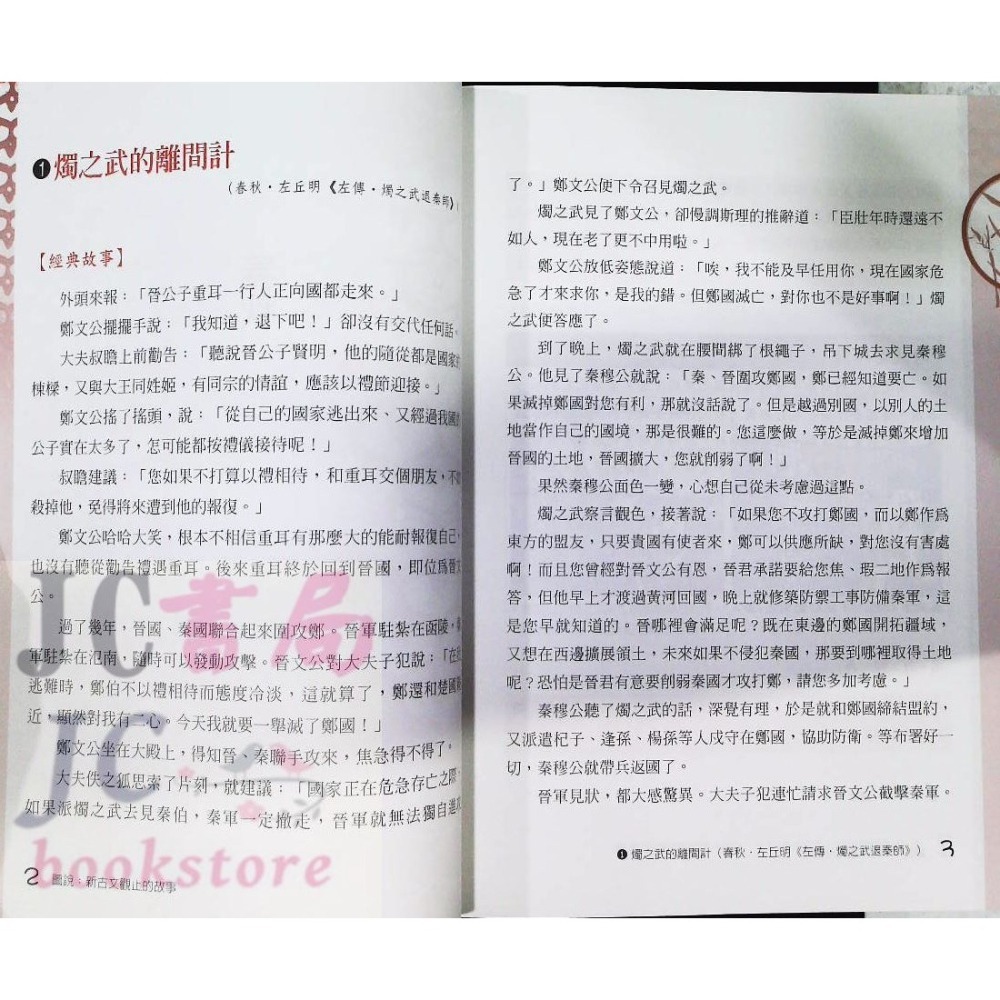 ❶燭之武的離間計
(春秋・左丘明《左傳・燭之武退秦師》)
【經典故事】
外頭來報:「晉公子重耳一行人正向國都走來。」
鄭文公擺擺手說:「我知道,退下吧!」卻沒有交代任何話。
大夫叔瞻上前勸告:「聽說晉公子賢明,他的隨從都是國家的
棟樑,又與大王同姓姬,有同宗的情誼,應該以禮節迎接。」
鄭文公搖了搖頭,說:「從自己的國家逃出來、又經過我國的
公子實在太多了,怎可能都按禮儀接待呢!」
叔瞻建議:「您如果不打算以禮相待,和重耳交個朋友,不
殺掉他,免得將來遭到他的報復。」
鄭文公哈哈大笑,根本不相信重耳有那麼大的能耐報復自己,
也沒有聽從勸告禮遇重耳。後來重耳終於回到晉國,即位為晉文
公。
過了幾年,晉國、秦國聯合起來圍攻鄭。晉軍駐紮在函陵,
軍駐紮在氾南,隨時可以發動攻擊。晉文公對大夫子犯說:「在
逃難時,鄭伯不以禮相待而態度冷淡,這就算了,鄭還和楚國
近,顯然對我有二心。今天我就要一舉滅了鄭國!」
鄭文公坐在大殿上,得知晉、秦聯手攻來,焦急得不得了。
大夫佚之狐思索了片刻,就建議:「國家正在危急存亡之際,
如果派燭之武去見秦伯,秦軍一定撤走,晉軍就無法獨自進攻
2 圖說:新古文觀止的故事
了。」鄭文公便下令召見燭之武。
燭之武見了鄭文公,卻慢調斯理的推辭道:「臣壯年時還遠不
如人,現在老了更不中用啦。」
鄭文公放低姿態說道:「唉,我不能及早任用你,現在國家危
急了才來求你,是我的錯。但鄭國滅亡,對你也不是好事啊!」燭
之武便答應了。
到了晚上,燭之武就在腰間綁了根繩子,吊下城去求見秦穆
公。他見了秦穆公就說:「秦、晉圍攻鄭國,鄭已經知道要亡。如
果滅掉鄭國對您有利,那就沒話說了。但是越過別國,以別人的土
地當作自己的國境,那是很難的。您這麼做,等於是滅掉鄭來增加
晉國的土地,晉國擴大,您就削弱了啊!」
果然秦穆公面色一變,心想自己從未考慮過這點。
燭之武察言觀色,接著說:「如果您不攻打鄭國,而以鄭作為
東方的盟友,只要貴國有使者來,鄭可以供應所缺,對您沒有害處
啊!而且您曾經對晉文公有恩,晉君承諾要給您焦、瑕二地作為報
答,但他早上才渡過黃河回國,晚上就修築防禦工事防備秦軍,這
是您早就知道的。晉哪裡會滿足呢?既在東邊的鄭國開拓疆域,
又想在西邊擴展領土,未來如果不侵犯秦國,那要到哪裡取得土地
呢?恐怕是晉君有意要削弱秦國才攻打鄭,請您多加考慮。」
秦穆公聽了燭之武的話,深覺有理,於是就和鄭國締結盟約,
又派遣杞子、逢孫、楊孫等人戍守在鄭國,協助防衛。等布署好一
切,秦穆公就帶兵返國了。
晉軍見狀,都大感驚異。大夫子犯連忙請求晉文公截擊秦軍。
❶燭之武的離間計(春秋・左丘明《左傳・燭之武退秦師》) 3
JC書局
JC
bookstore